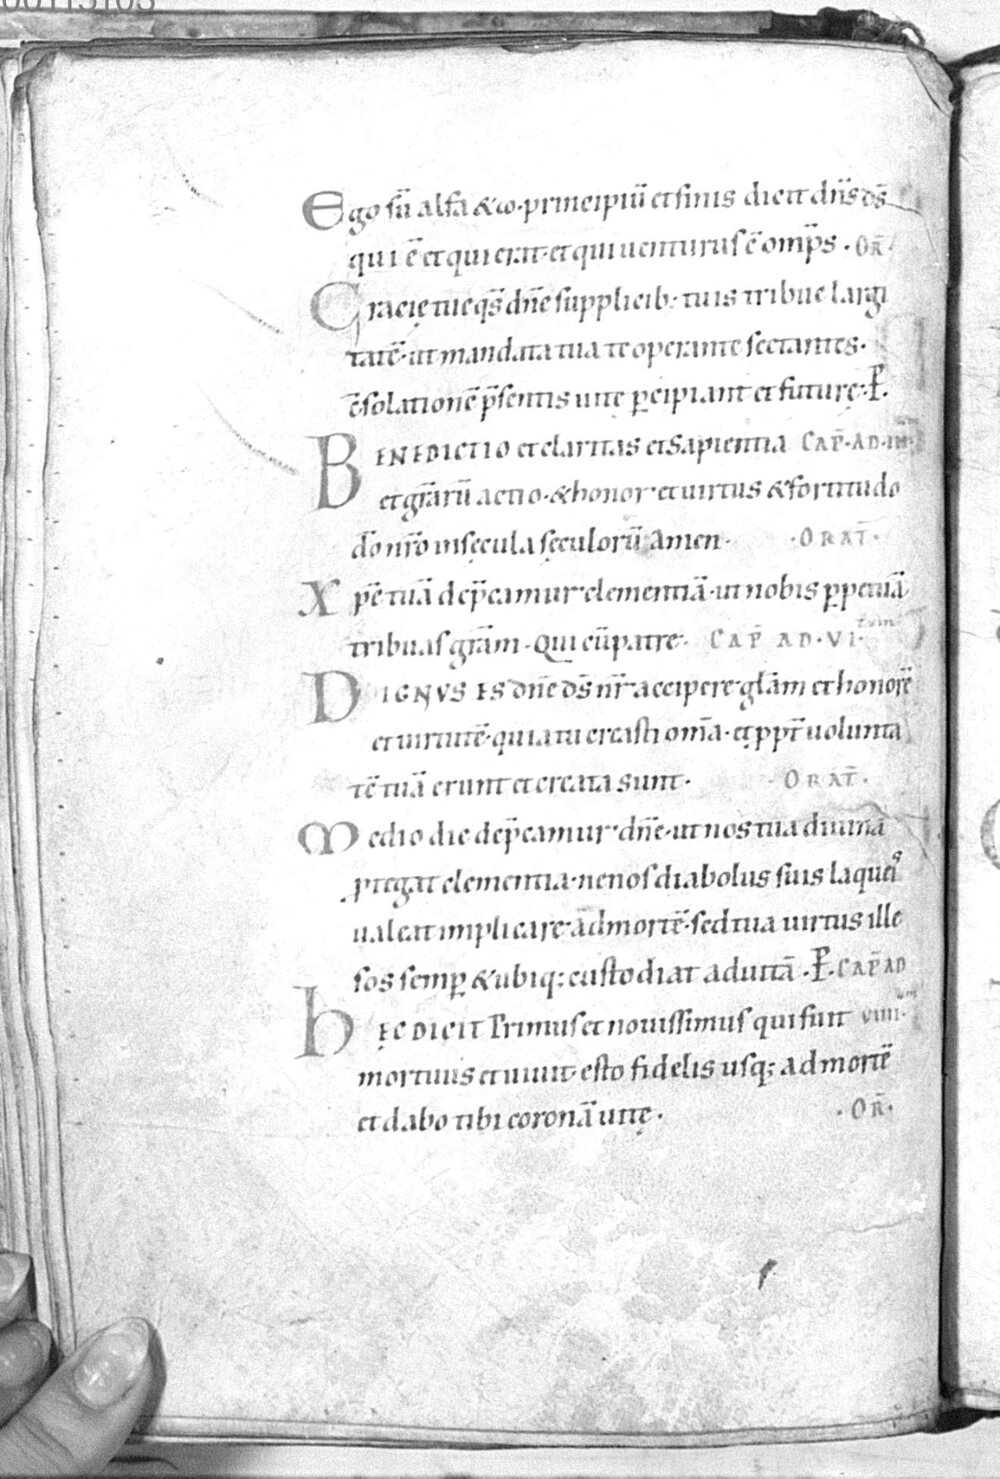 Ego sū alfa & ω· principiū et finis dicit dn̄s ds̄
qui ē et qui erat· et qui uenturus ē omp̄s · OR̄·
Gracię tue qs̄ dn̄e supplicib; tuis tribue largi
tatē· ut mandata tua te operante sectantes·
c̄solationē p̄sentis uite p̲cipiant et future· P̲.
BENEDICTIO et claritas et Sapientia CAP̄· AD· III
et gr̄arū actio· & honor· et uirtus & fortitudo
dō nr̄o in sęcula sęculorū Amen· · ORAT̄·
Xpē tuā dep̄camur clementiā· ut nobis p̲petuā
tribuas gr̄am· Qui cū patre· CAP̄ AD· VI·
DIGNVS ES dn̄e ds̄ nr̄ accipere gl̄am et honorē
et uirtutē· quia tu creasti om̄a· et ppt̄ uolunta
tē tuā erunt et creata sunt· · ORAT̄·
Medio die dep̄camur dn̄e· ut nos tua diuina
ptegat clementia· ne nos diabolus suis laquei⁹
ualeat implicare ad mortē· sed tua uirtus ille
sos semp̲ & ubiq; custodiat ad uitā · P̲. CAP̄ AD
hEC DICIT Primus et nouissimus qui fuit VIIII·
mortuus et uiuit· esto fidelis usq; ad mortē
et dabo tibi coronā uitę· · OR̄·